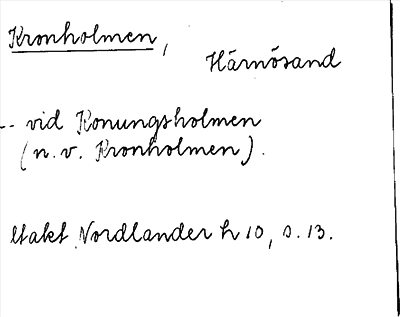 Kronholmen,
Härnösand
-- vid Konungsholmen
(n.v. Kronholmen).
Utakt Nordlander h 10, s. 13.